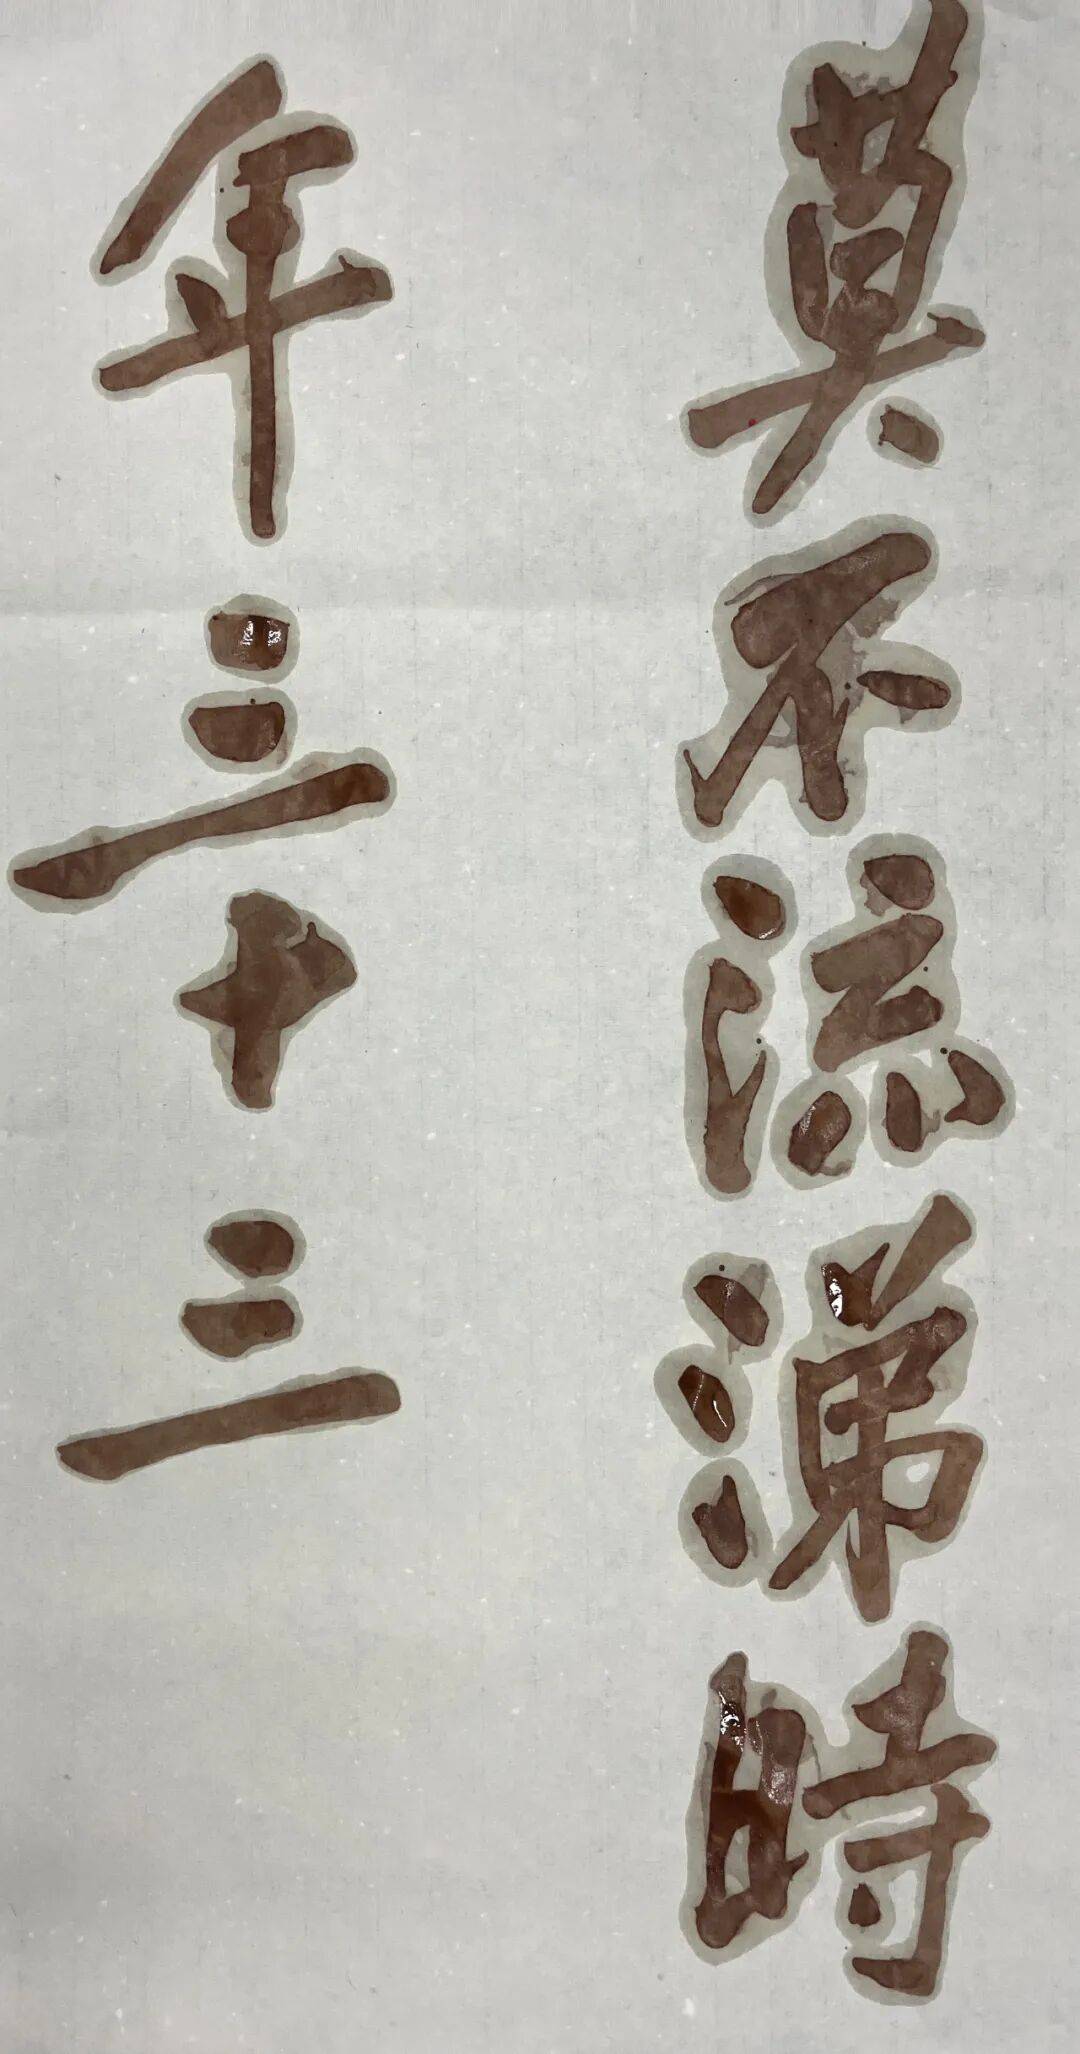 莫不流涕時
年三十三